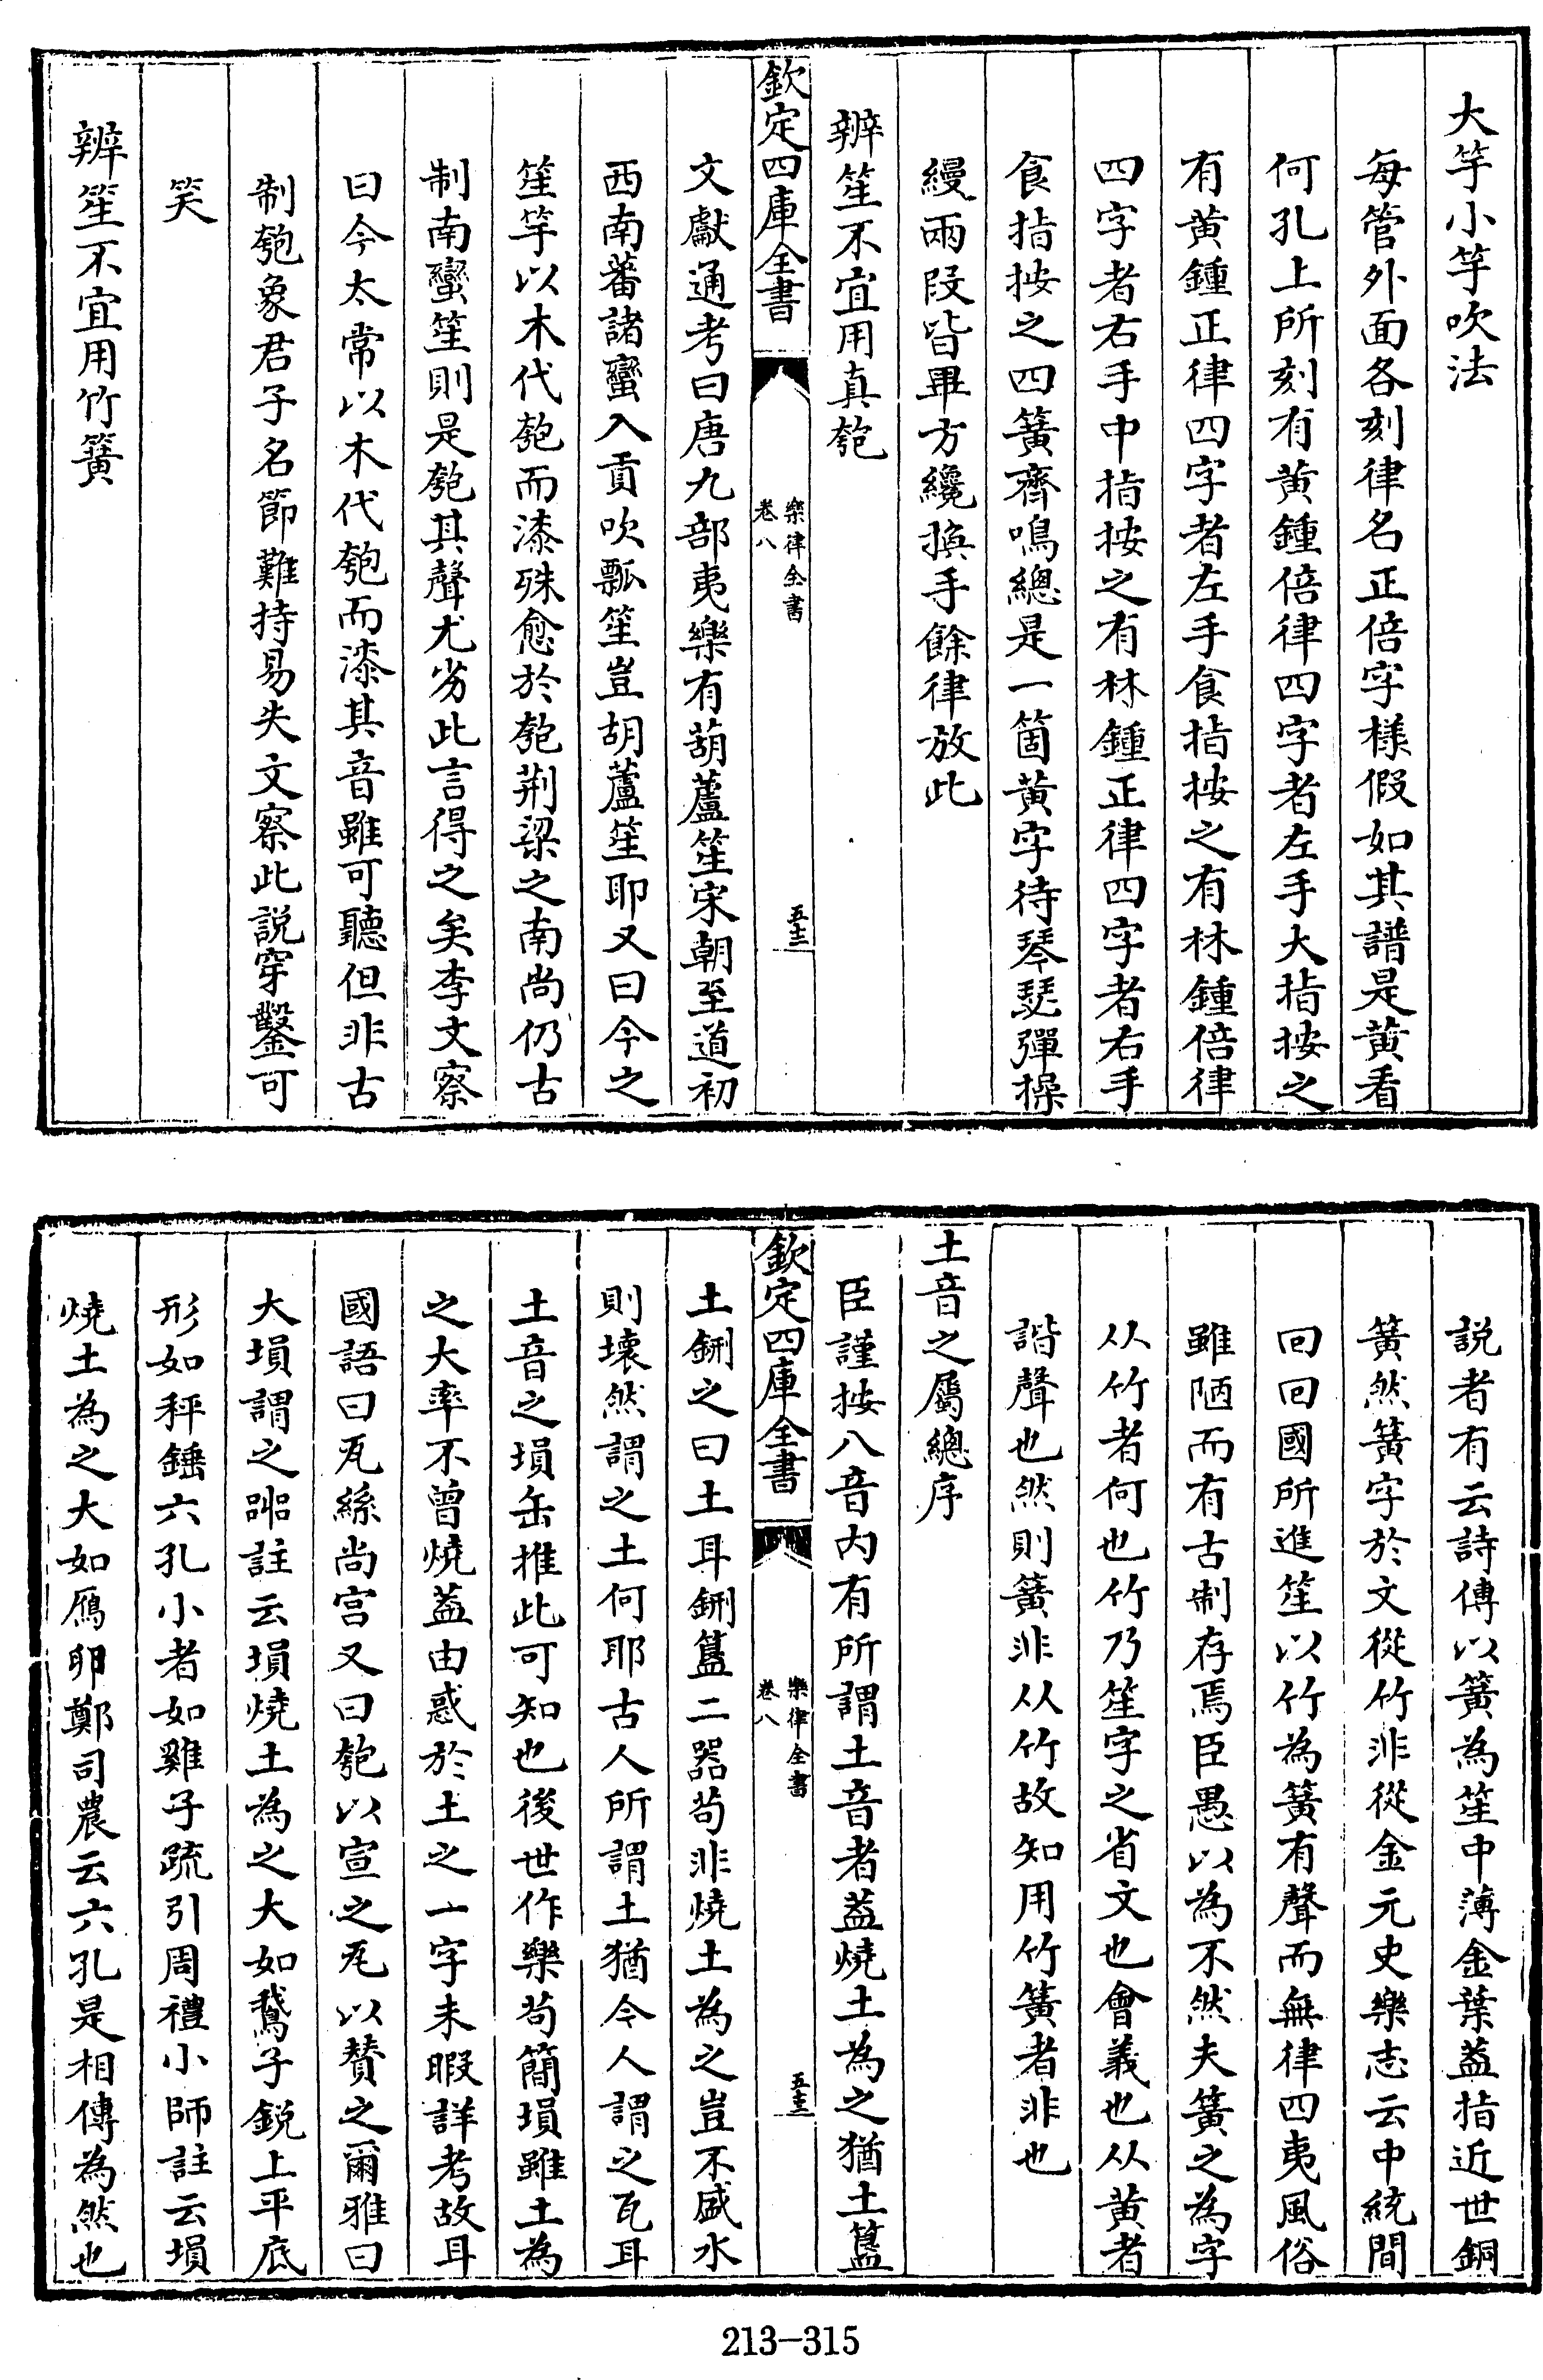 大竽小竽吹法
每管外面各刻律名正倍字様假如其譜是黄看
何孔上所刻有黄鍾倍律四字者左手大指按之
有黄鍾正律四字者左手食指按之有林鍾倍律
四字者右手中指按之有林鍾正律四字者右手
食指按之四簧齊鳴總是一箇黄字待琴瑟彈操
縵兩段皆畢方纔換手餘律放此
辨笙不宜用真匏
欽定四庫全書
樂律全書
卷八
五十二
文獻通考曰唐九部夷樂有葫蘆笙宋朝至道初
西南蕃諸蠻入貢吹瓢笙豈胡蘆笙耶又曰今之
笙竽以木代匏而漆殊愈於匏荆梁之南尚仍古
制南蠻笙則是匏其聲尤劣此言得之矣李文察
曰今太常以木代匏而漆其音雖可聽但非古
制匏象君子名節難持易失文察此説穿鑿可
笑
辨笙不宜用竹簧
説者有云詩傳以簧為笙中薄金葉葢指近世銅
簧然簧字於文從竹非從金元史樂志云中統間
回回國所進笙以竹為簧有聲而無律四夷風俗
雖陋而有古制存焉臣愚以為不然夫簧之為字
从竹者何也竹乃笙字之省文也會義也从黄者
諧聲也然則簧非从竹故知用竹簧者非也
土音之屬總序
臣謹按八音内有所謂土音者葢燒土為之猶土簋
欽定四庫全書
樂律全書
卷八
五十三
土鉶之曰土耳鉶簋二器苟非燒土為之豈不盛水
則壊然謂之土何耶古人所謂土猶今人謂之瓦耳
土音之塤缶推此可知也後世作樂苟簡塤雖土為
之大率不曾燒葢由惑於土之一字未暇詳考故耳
國語曰瓦絲尚宫又曰匏以宣之瓦以賛之爾雅曰
大塤謂之㗊註云塤燒土為之大如鵞子鋭上平底
形如秤錘六孔小者如雞子疏引周禮小師註云塤
燒土為之大如鴈卵鄭司農云六孔是相傳為然也
213-315